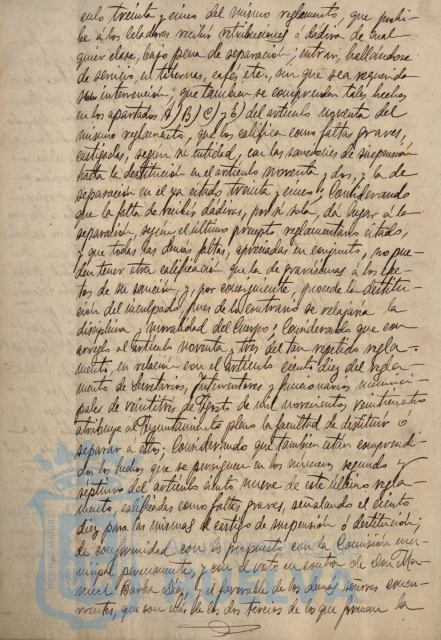 culo treinta y cinco del mismo reglamento, que prohi-
be a los celadores recibir retribuciones ó dádivas de cual-
quier clase, bajo pena de separación; entrar, hallándose
de servicio, en tabernas, cafés, etc., sin que sea requerida
su intervención; que tambien se comprenden tales hechos
en los apartados A) B) C) y b) del artículo noventa del
mismo reglamento, que los califica como faltas graves,
castigadas, según su entidad, con las sanciones de suspensión
hasta la destitución en el artículo noventa y dos, y la de
separación en el ya citado treinta y cinco; Considerando
que la falta de recibir dádivas, por si sola, da lugar a la
separación, según el último precepto reglamentario citado,
y que todas las demás faltas, apreciadas en conjunto, no pue-
den tener otra calificación que la de gravísimas á los efec-
tos de su sanción, y, por consiguiente, procede la destitu-
ción del inculpado, pues de lo contrario se relajaría la
disciplina y moralidad del Cuerpo; Considerando que con
arreglo al artículo noventa y tres del tan repetido regla-
mento, en relación con el artículo ciento diez del regla-
mento de Secretarios, Interventores y funcionarios munici-
pales de veintitres de Agosto de mil novecientos veinticuatro
atribuye al Ayuntamiento pleno la facultad de destituir o
separar á estos; Considerando que tambien están comprendi-
dos los hechos que se persiguen en los números segundo y
séptimo del artículo ciento nueve de este último regla-
mento, calificadas como faltas graves, señalando el ciento
diez para las mismas el castigo de suspensión ó destitución;
de conformidad con lo propuesto por la Comisión mu-
nicipal permanente, y con el voto en contra de Don Ma-
nuel Barba Díez, y el favorable de los demás señores concu-
rrentes, que son más de los dos tercios de los que forman la